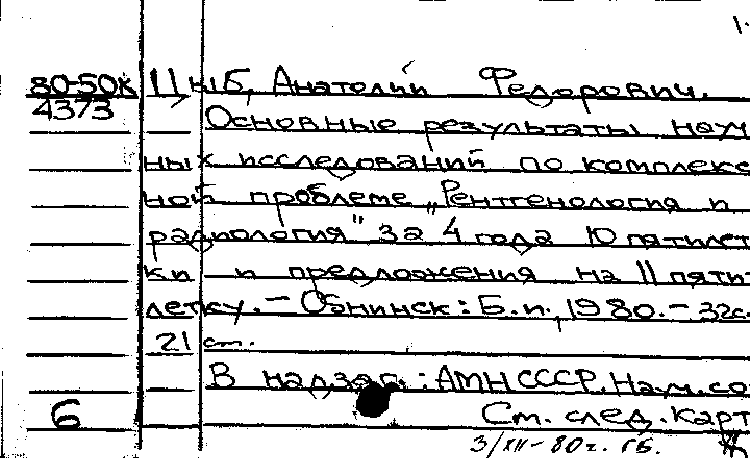 80-50к Цыб, Анатолий Федорович.
4373 Основные результаты науч
ных исследований по комплекс
ной проблеме „Рентгенология и
радиология" за 4 года 10 пятилет
ки и предложения на 11 пяти
летку. – Обнинск: Б.и., 1980. – 32с.
21 см.
В надзаг.: АМН СССР. Науч. со
6 Ст. след. карт
3/XII-80г. гб.